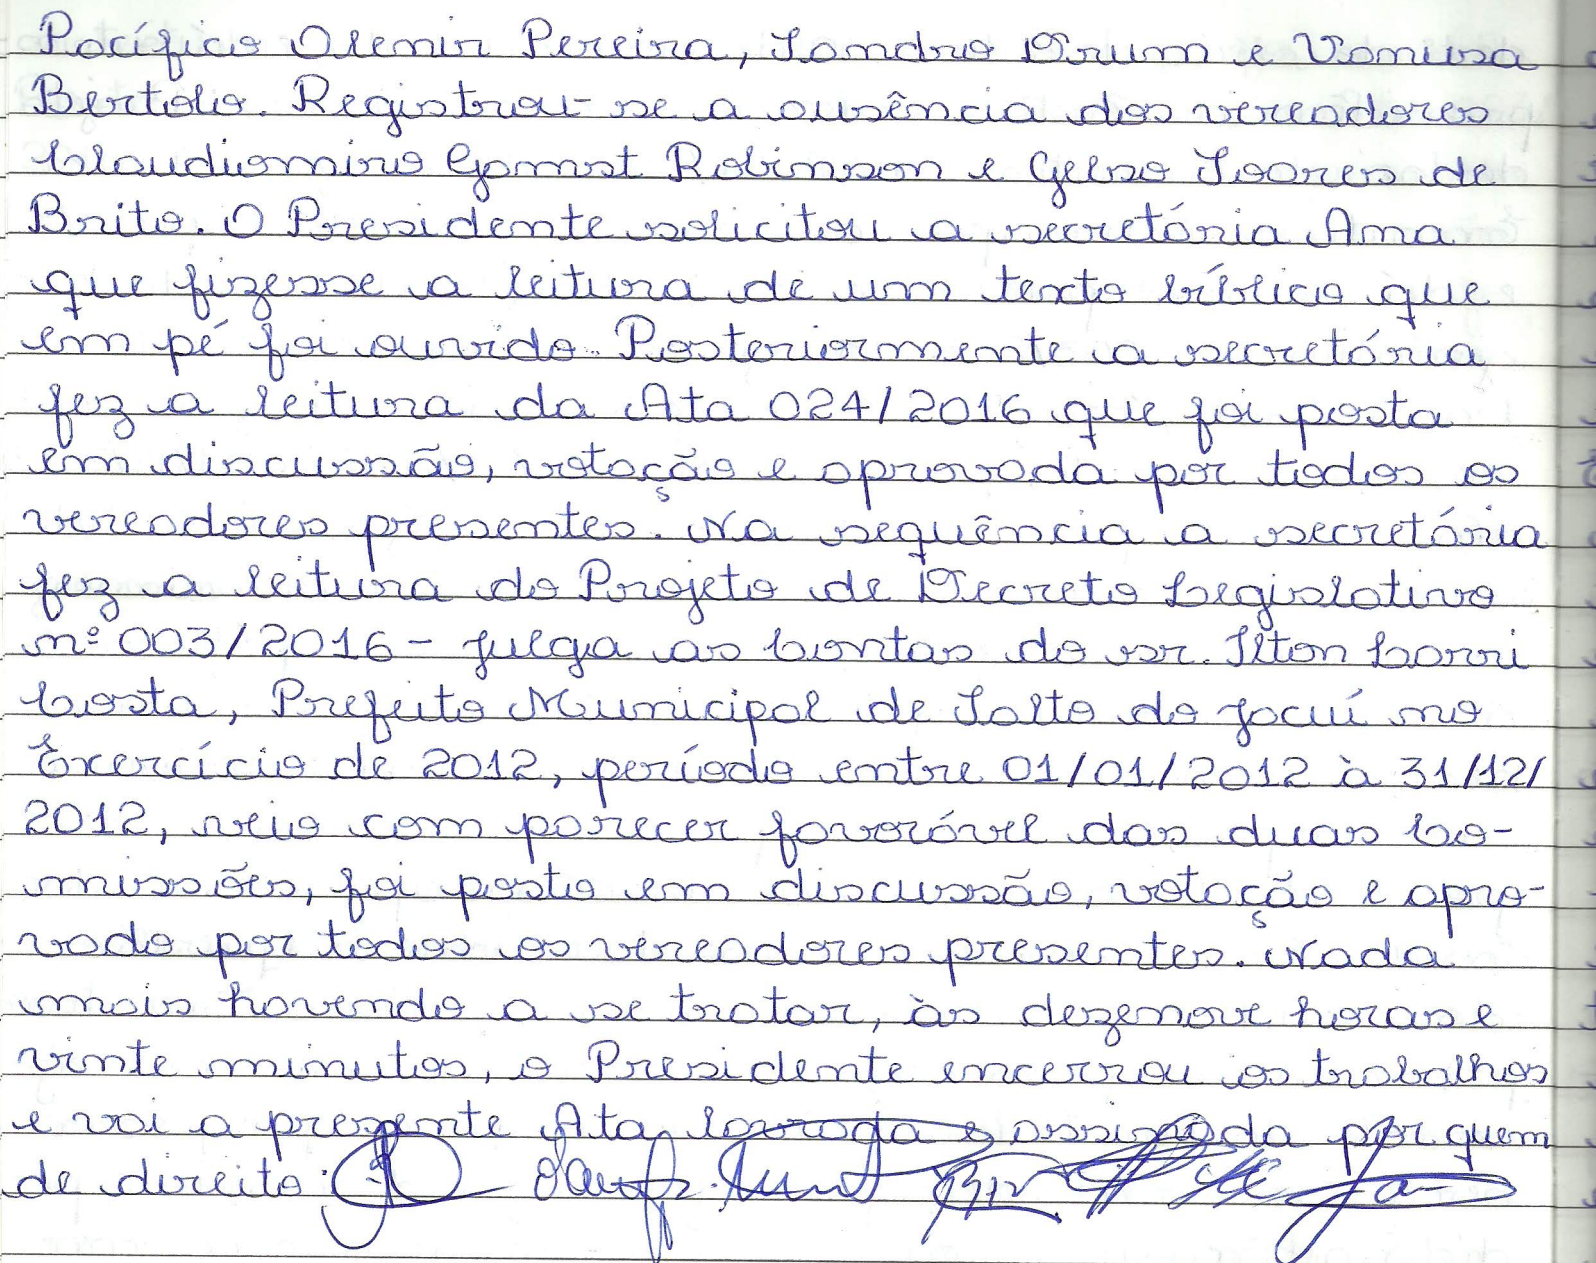 Pacífico Olemir Pereira, Sandro Drum e Vaniusa
Bertolo. Registrou-se a ausência dos vereadores
Claudiomiro Gamst Robinson e Gelso Soares de
Brito. O Presidente solicitou a secretária Ana
que fizesse a leitura de um texto bíblico que
em pé foi ouvido. Posteriormente a secretária
fez a leitura da Ata 024/2016 que foi posta
em discussão, votação e aprovada por todos os
vereadores presentes. Na sequência a secretária
fez a leitura do Projeto de Decreto Legislativo
nº 003/2016 - julga as Contas do sr. Ilton
Costa, Prefeito Municipal de Salto do Jacuí no
Exercício de 2012, período entre 01/01/2012 à 31/12/
2012, veio com parecer favorável das duas Co-
missões, foi posto em discussão, votação e apro-
vado por todos os vereadores presentes. Nada
mais havendo a se tratar, às dezenove horas e
vinte minutos, o Presidente encerrou os trabalhos
e vai a presente Ata lavrada e assinada por quem
de direito.